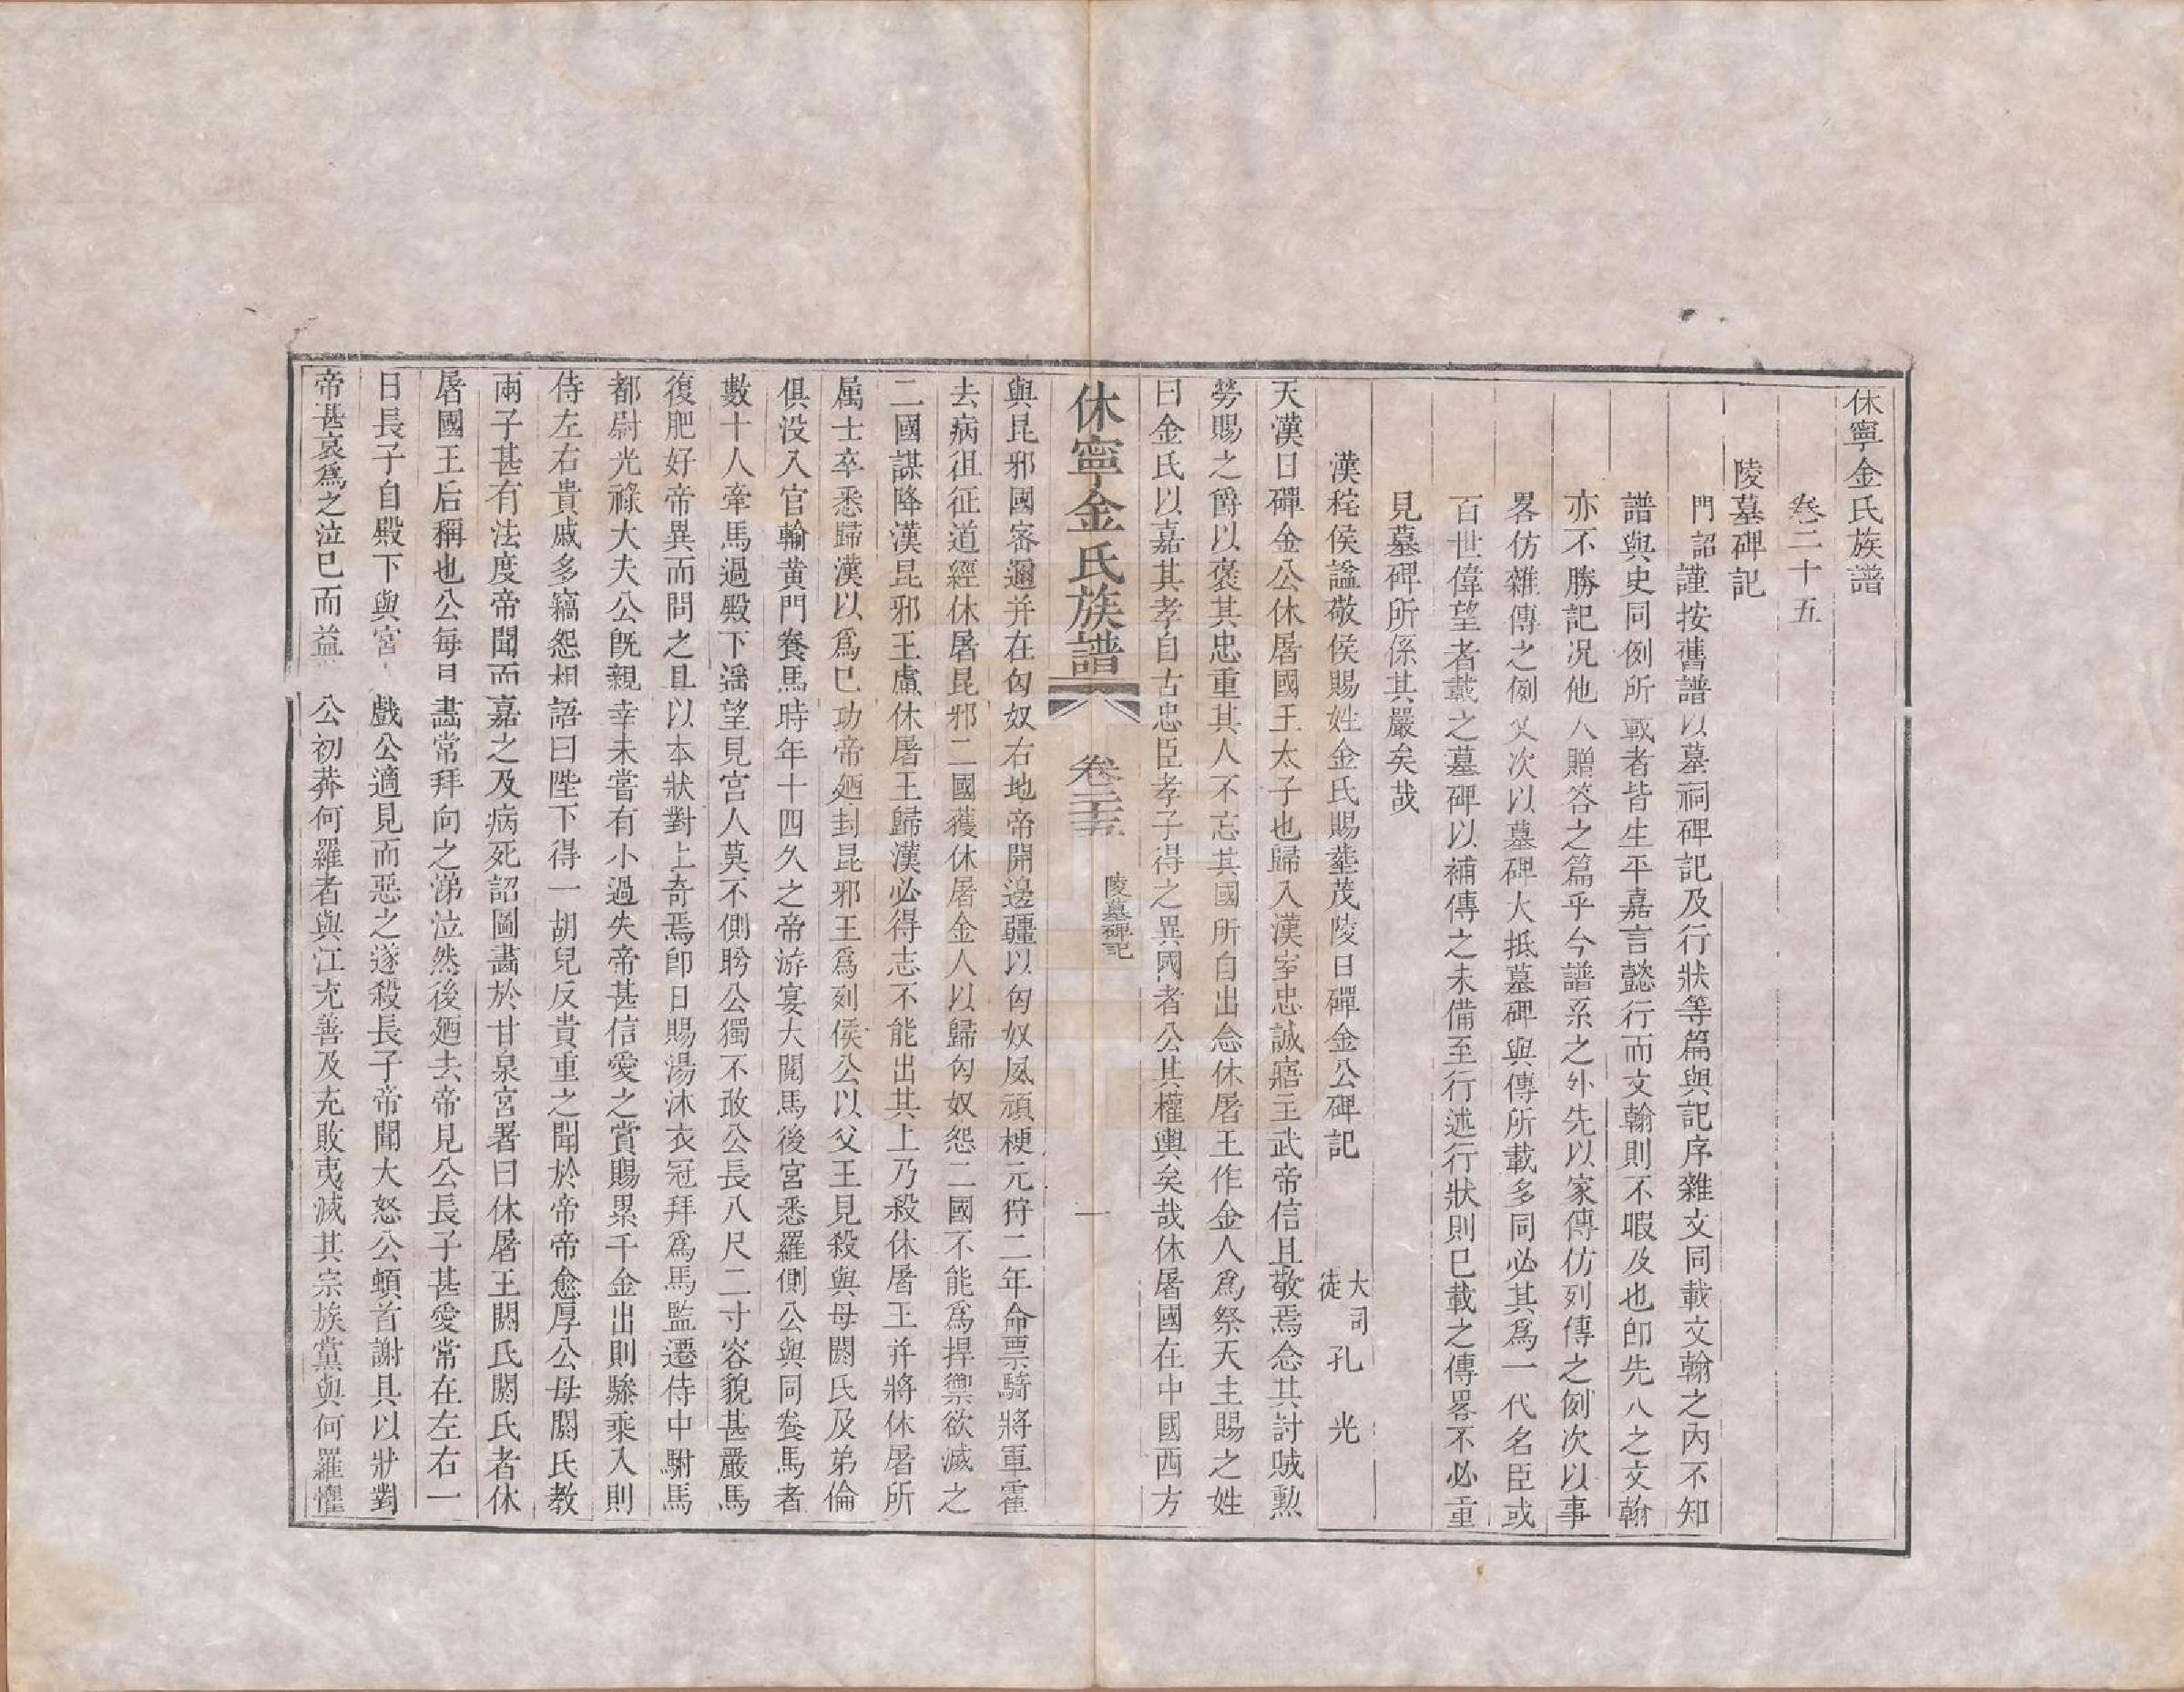 休寧金氏族譜
卷二十五
陵墓碑記
門詔謹按舊譜以墓祠碑記及行狀等篇與記序雜文同載文翰之內不知
譜與史同例所載者皆生平嘉言懿行而文翰則不暇及也卽先人之文翰
亦不勝記况他人贈答之篇乎今譜系之外先以家傳仿列傳之例次以事
畧仿雜傳之例又次以墓碑大抵墓碑與傳所載多同必其爲一代名臣或
百世偉望者載之墓碑以補傳之未備至行述行狀則已載之傳畧不必重
見墓碑所係其嚴矣哉
漢秺侯謚敬侯賜姓金氏賜塟茂陵日磾金公碑記 大司徒孔光
天漢日磾金公休屠國王太子也歸入漢室忠誠寤主武帝信且敬焉念其討賊勲
勞賜之爵以褒其忠重其人不忘其國所自出念休屠王作金人爲祭天主賜之姓
曰金氏以嘉其孝自古忠臣孝子得之異國者公其權輿矣哉休屠國在中國西方
休寧金氏族譜 卷二十五 陵墓碑記 一
與昆邪國密邇并在匈奴右地帝開邊疆以匈奴夙頑梗元狩二年命票騎將軍霍
去病徂征道經休屠昆邪二國獲休屠金人以歸匈奴怨二國不能爲捍禦欲滅之
二國謀降漢昆邪王慮休屠王歸漢必得志不能出其上乃殺休屠王并將休屠所
属士卒悉歸漢以爲已功帝廼封昆邪王爲列侯公以父王見殺與母閼氏及弟倫
俱没入官輸黄門養馬時年十四久之帝游宴大閱馬後宮悉羅側公與同養馬者
數十人牽馬過殿下遥望見宮人莫不側盻公獨不敢公長八尺二寸容貌甚嚴馬
復肥好帝異而問之且以本狀對上奇焉卽日賜湯沐衣冠拜爲馬監遷侍中駙馬
都尉光祿大夫公旣親幸未嘗有小過失帝甚信愛之賞賜累千金出則驂乘入則
侍左右貴戚多竊怨相語曰陛下得一胡兒反貴重之聞於帝帝愈厚公母閼氏教
兩子甚有法度帝聞而嘉之及病死詔圖畵於甘泉宮署曰休屠王閼氏閼氏者休
屠國王后稱也公每見畵常拜向之涕泣然後廼去帝見公長子甚愛常在左右一
日長子自殿下與宮 戲公適見而惡之遂殺長子帝聞大怒公頓首謝具以狀對
帝甚哀爲之泣已而益 公初莽何羅者與江充善及充敗夷滅其宗族黨與何羅懼